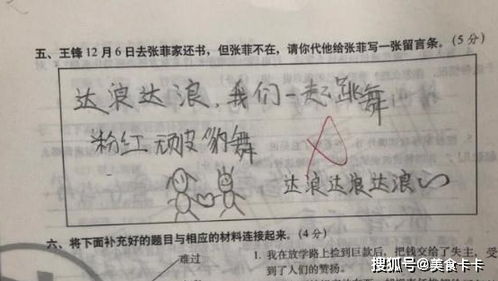 五、王锋12月6日去张菲家还书，但张菲不在，请你代他给张菲写一张留言条。(5分)
达浪达浪，我们一起跳舞
粉红顽皮豹舞
达浪达浪达浪~
六、将下面补充好的题目与相应的材料连接起来。(4分)
难过
1. 我在放学路上捡到巨款后，把钱交给了失主，受
到了人们的赞扬。
搜狐号@美食卡卡